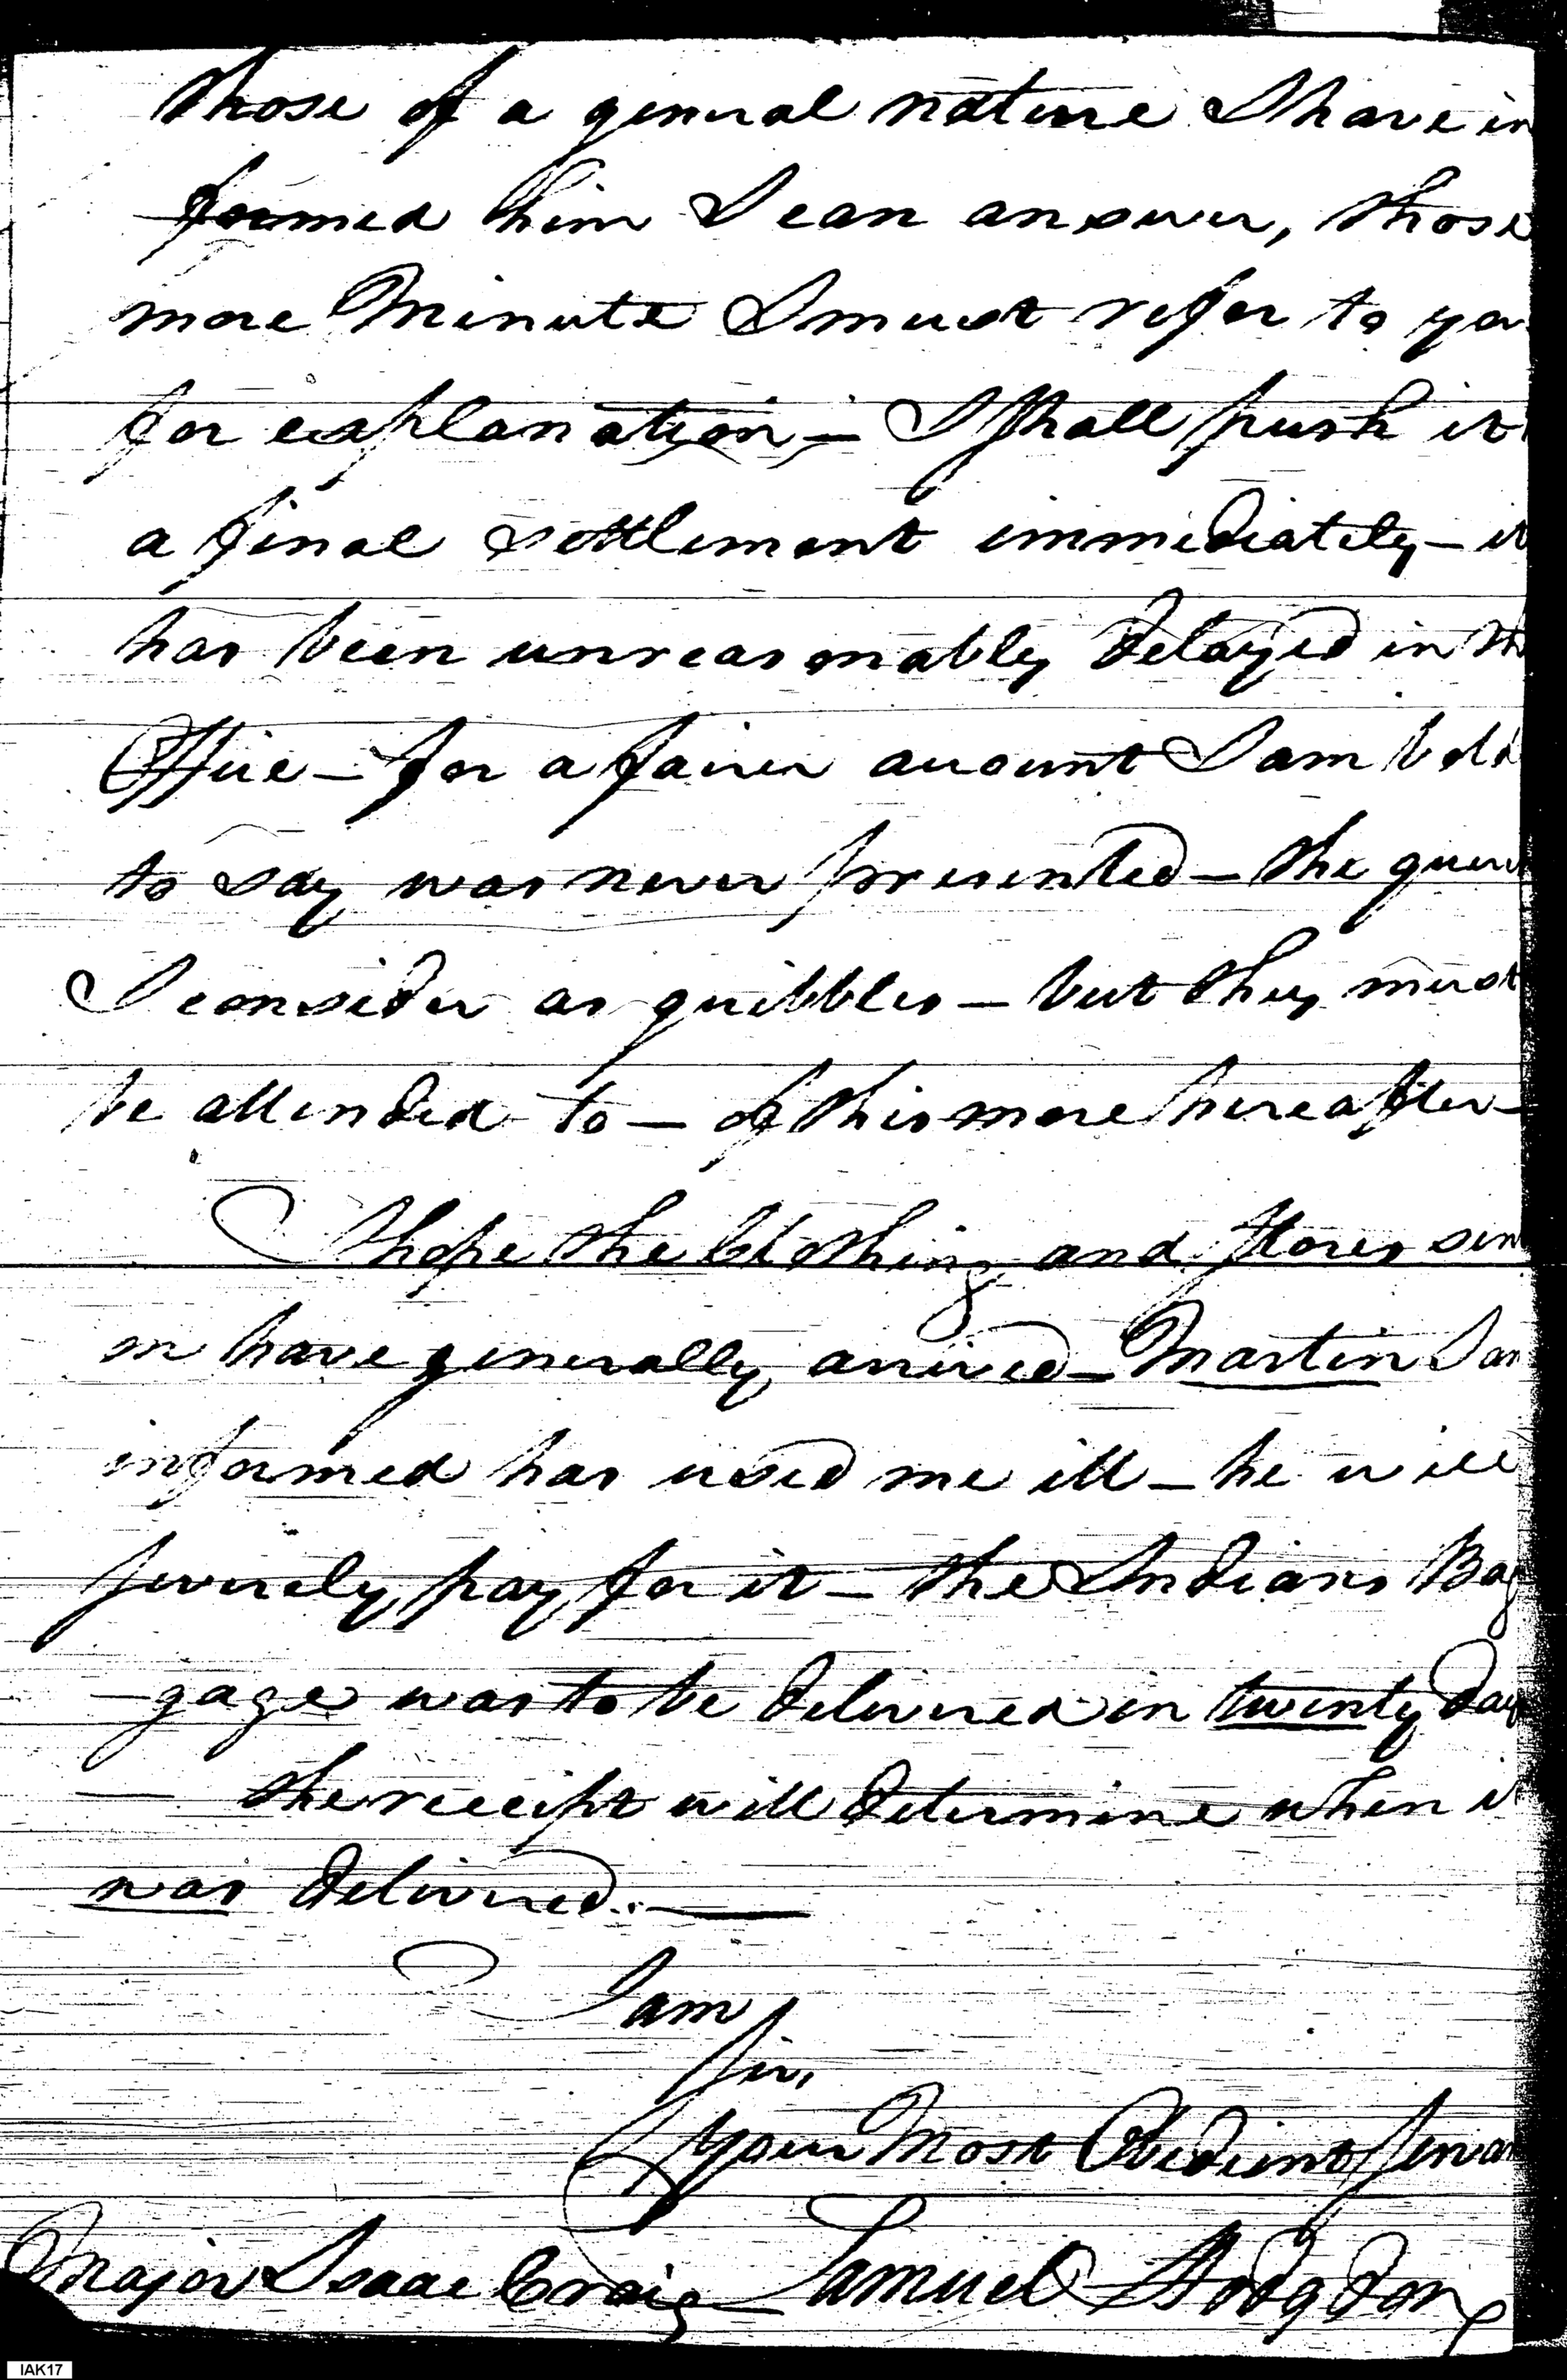 those of a general nature I have in
formed him I can answer, those
more Minute I must refer to yo
for explanation;— I shall push it
a final settlement immediately— it
has been unreasonably delayed in th
Office— for a fairer account I am bold
to say was never presented— the quer
I consider as quibbles— but they must
be attended to— of this more hereafter—
I hope the Clothing and Stores sen
on have generally arrived— Martin I am
informed has used me ill— he will
severely pay for it— the Indians Bag
—gage was to be delivered in twenty day
— the receipt will determine when it
was delivered.—
I am
Sir,
Your Most Obedient Servan
Major Isaac Craig— Samuel Hodgdon
IAK17